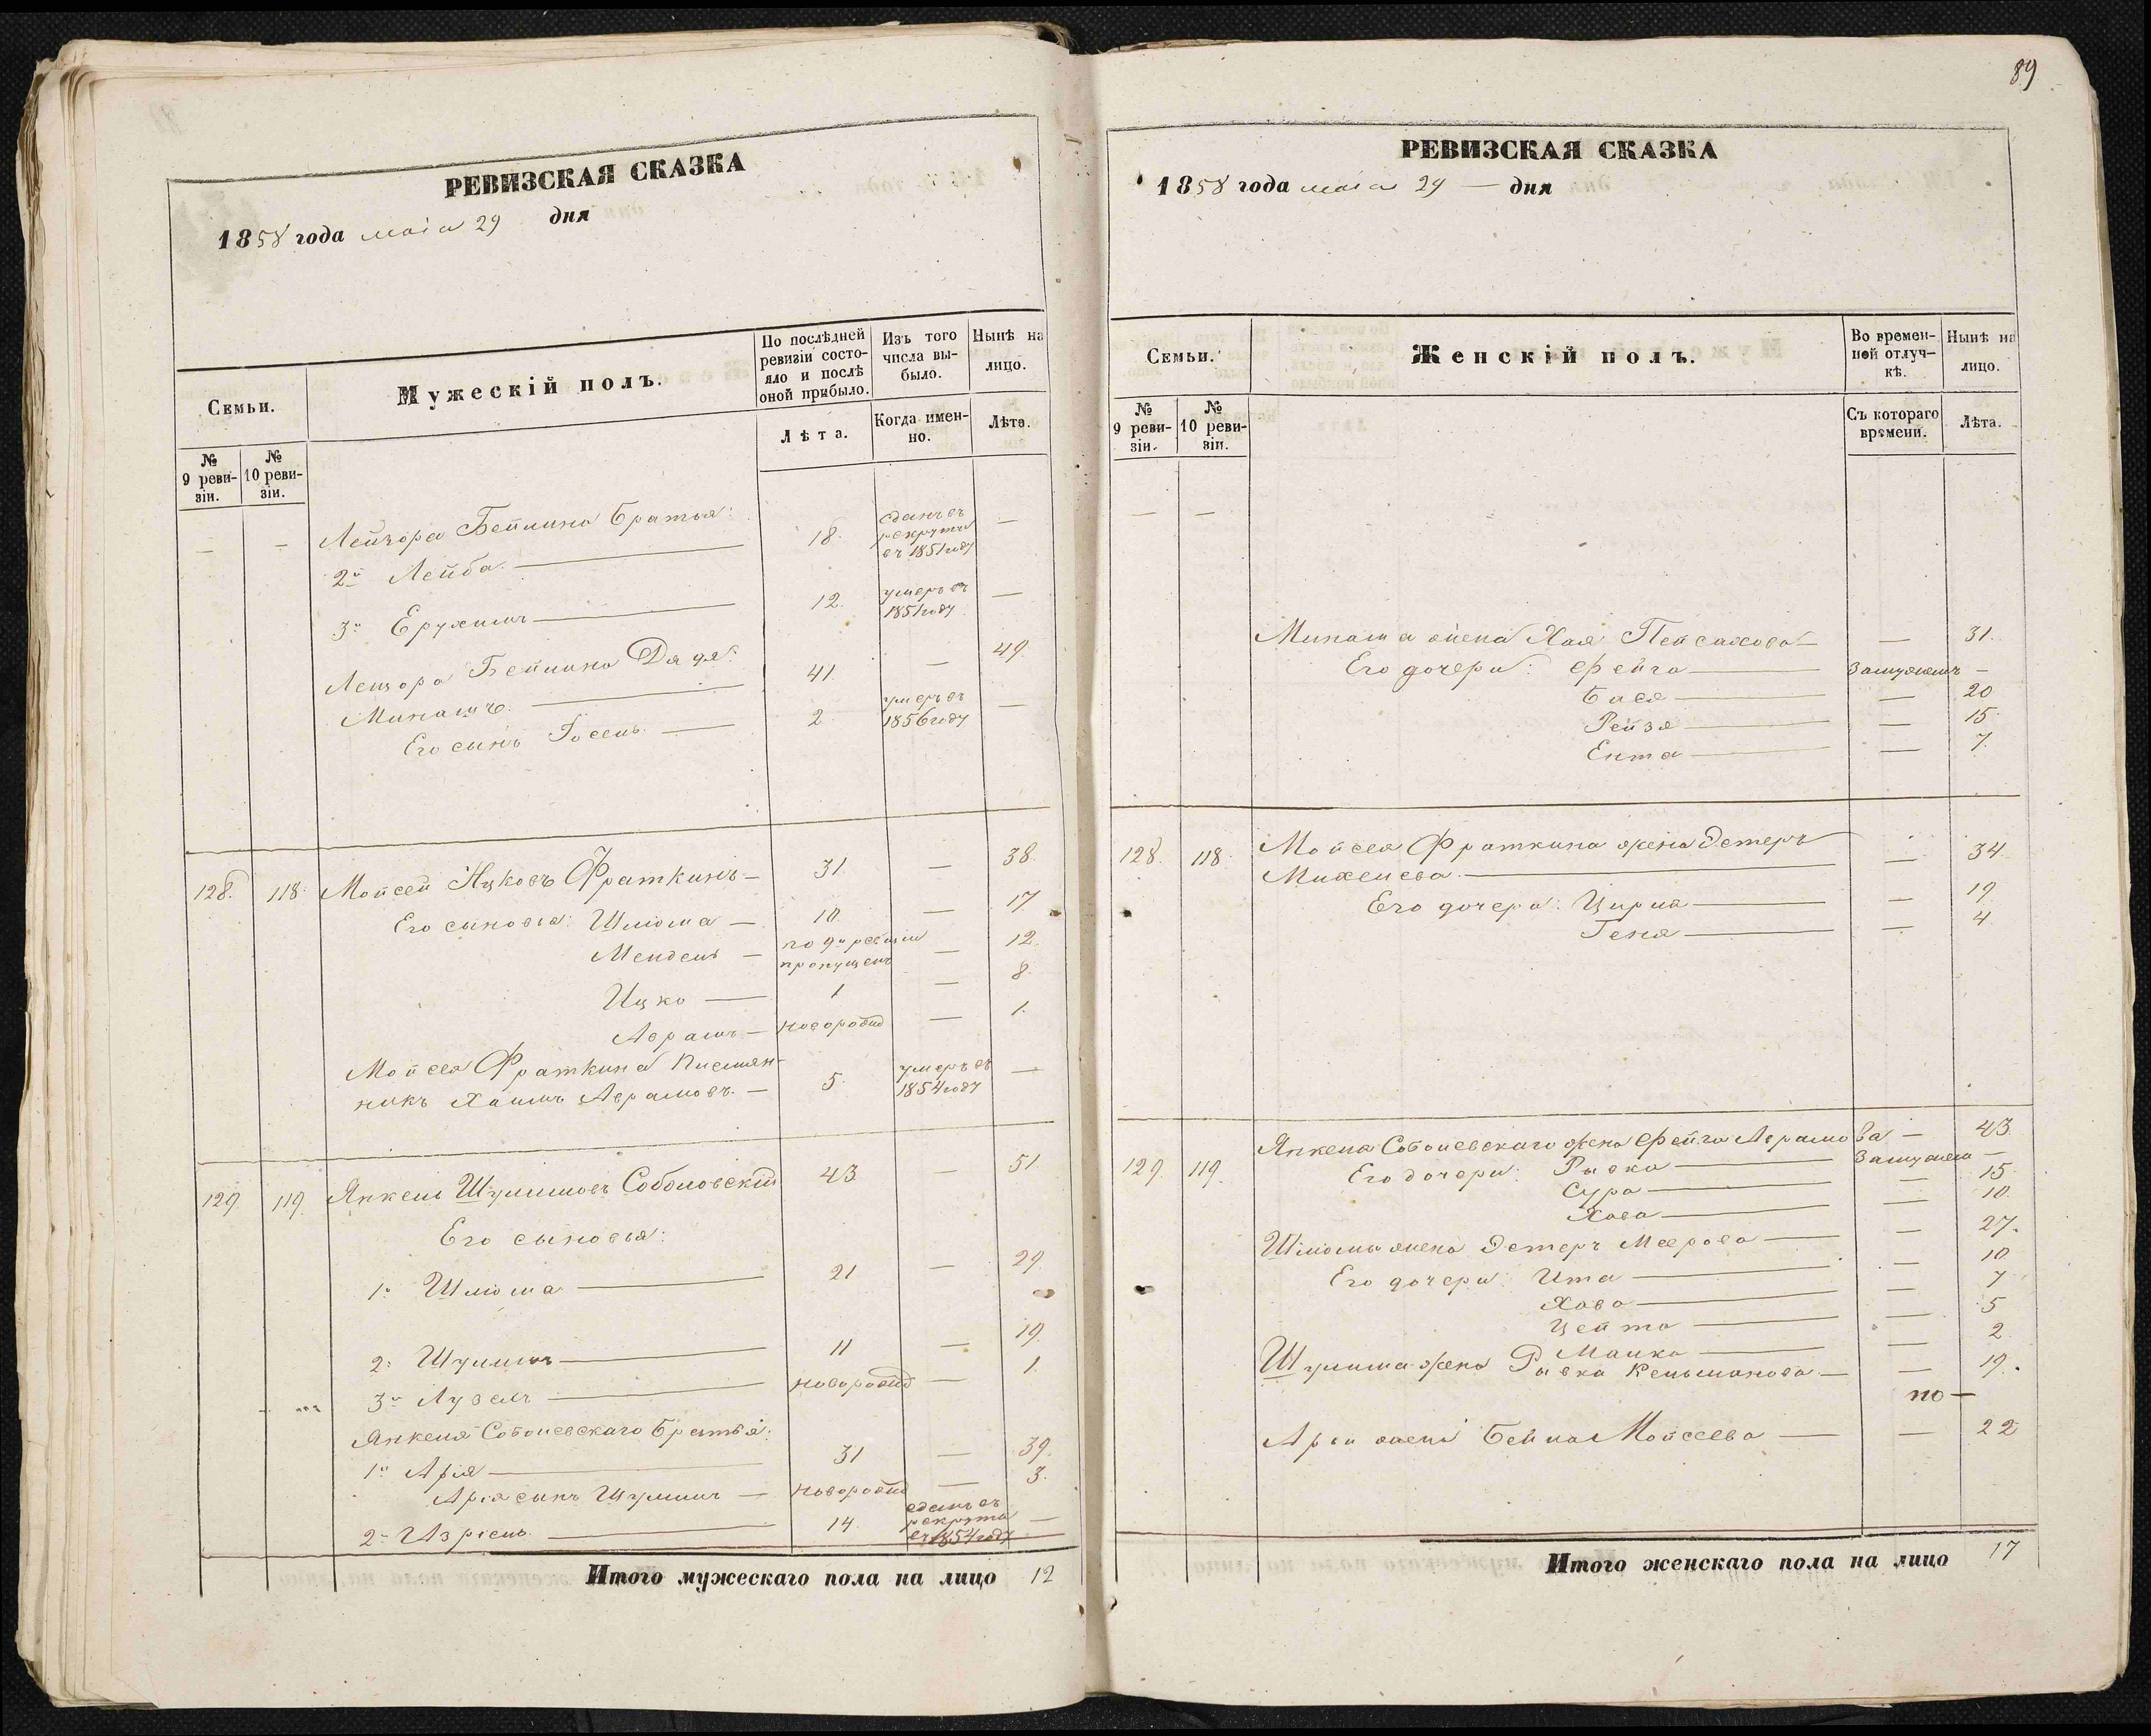 РЕВИЗСКАЯ СКАЗКА
1858 года маія 29 дня
Семьи.
Мужескій полъ.
По послѣдней ревизіи состо-яло и послѣ оной прибыло.
Изъ того числа вы-было.
Нынѣ на лицо.
№ 9 реви-зіи.
№ 10 реви-зіи.
Лѣта.
Когда имен-но.
Лѣта.
Лейзора Бейлина братья:
2й Лейба — 18. сданъ въ рекруты въ 1851 году —
3й Ерухимъ — 12. умеръ въ 1851 году —
Лейзора Бейлина Дядя:
Минашъ. — 41 — 49.
Его сынъ Іосель — 2. умеръ въ 1856 году —
128. 118. Мойсей Ицковъ Фраткинъ — 31 — 38.
Его сыновья: Шліома — 10. — 17.
Мендель — по 9й ревизіи пропущенъ — 12.
Ицко — 1 — 8.
Аврамъ — новорожд — 1.
Мойсея Фраткина Племян-
никъ Хаимъ Аврамовъ. — 5. умеръ въ 1854 году —
129 119 Янкель Шулимовъ Соболовскій 43 — 51
Его сыновья:
1й Шліома — 21 — 29.
2й Шулимъ — 11 — 19.
3й Лузеръ — новорожд — 1.
Янкеля Соболевскаго братья:
1й Арія — 31 — 39.
Арія сынъ Шулимъ — новорожд — 3.
2й Изріель. — 14 сданъ въ рекруты въ 1854 году —
Итого мужескаго пола на лицо 12
89
РЕВИЗСКАЯ СКАЗКА
1858 года маія 29 — дня
Семьи.
Женскій полъ.
Во времен-ной отлуч-кѣ.
Нынѣ на лицо.
№ 9 реви-зіи.
№ 10 реви-зіи.
Съ котораго времени.
Лѣта.
Минаша жена Хая Пейсахова — — 31.
Его дочери: Фейга — Замужемъ —
Бася — — 20
Рейзя — — 15
Ента — — 7.
128. 118. Мойсея Фраткина жена Эстеръ
Михелева. — — 34.
Его дочери: Цирла — — 19
Геня — — 4.
129. 119. Янкеля Соболевскаго жена Фейга Аврамова — 43.
Его дочери: Рывка — Замужемъ —
Сура — — 15
Хава — — 10.
Шліомы жена Эстеръ Меерова — — 27.
Его дочери: Ита — — 10
Хава — — 7
Цейта — — 5
Малка — — 2
Шулима жена Рывка Кельманова — — 19.
по —
Аріи жена Бейла Мойсеева — — 22
Итого женскаго пола на лицо 17